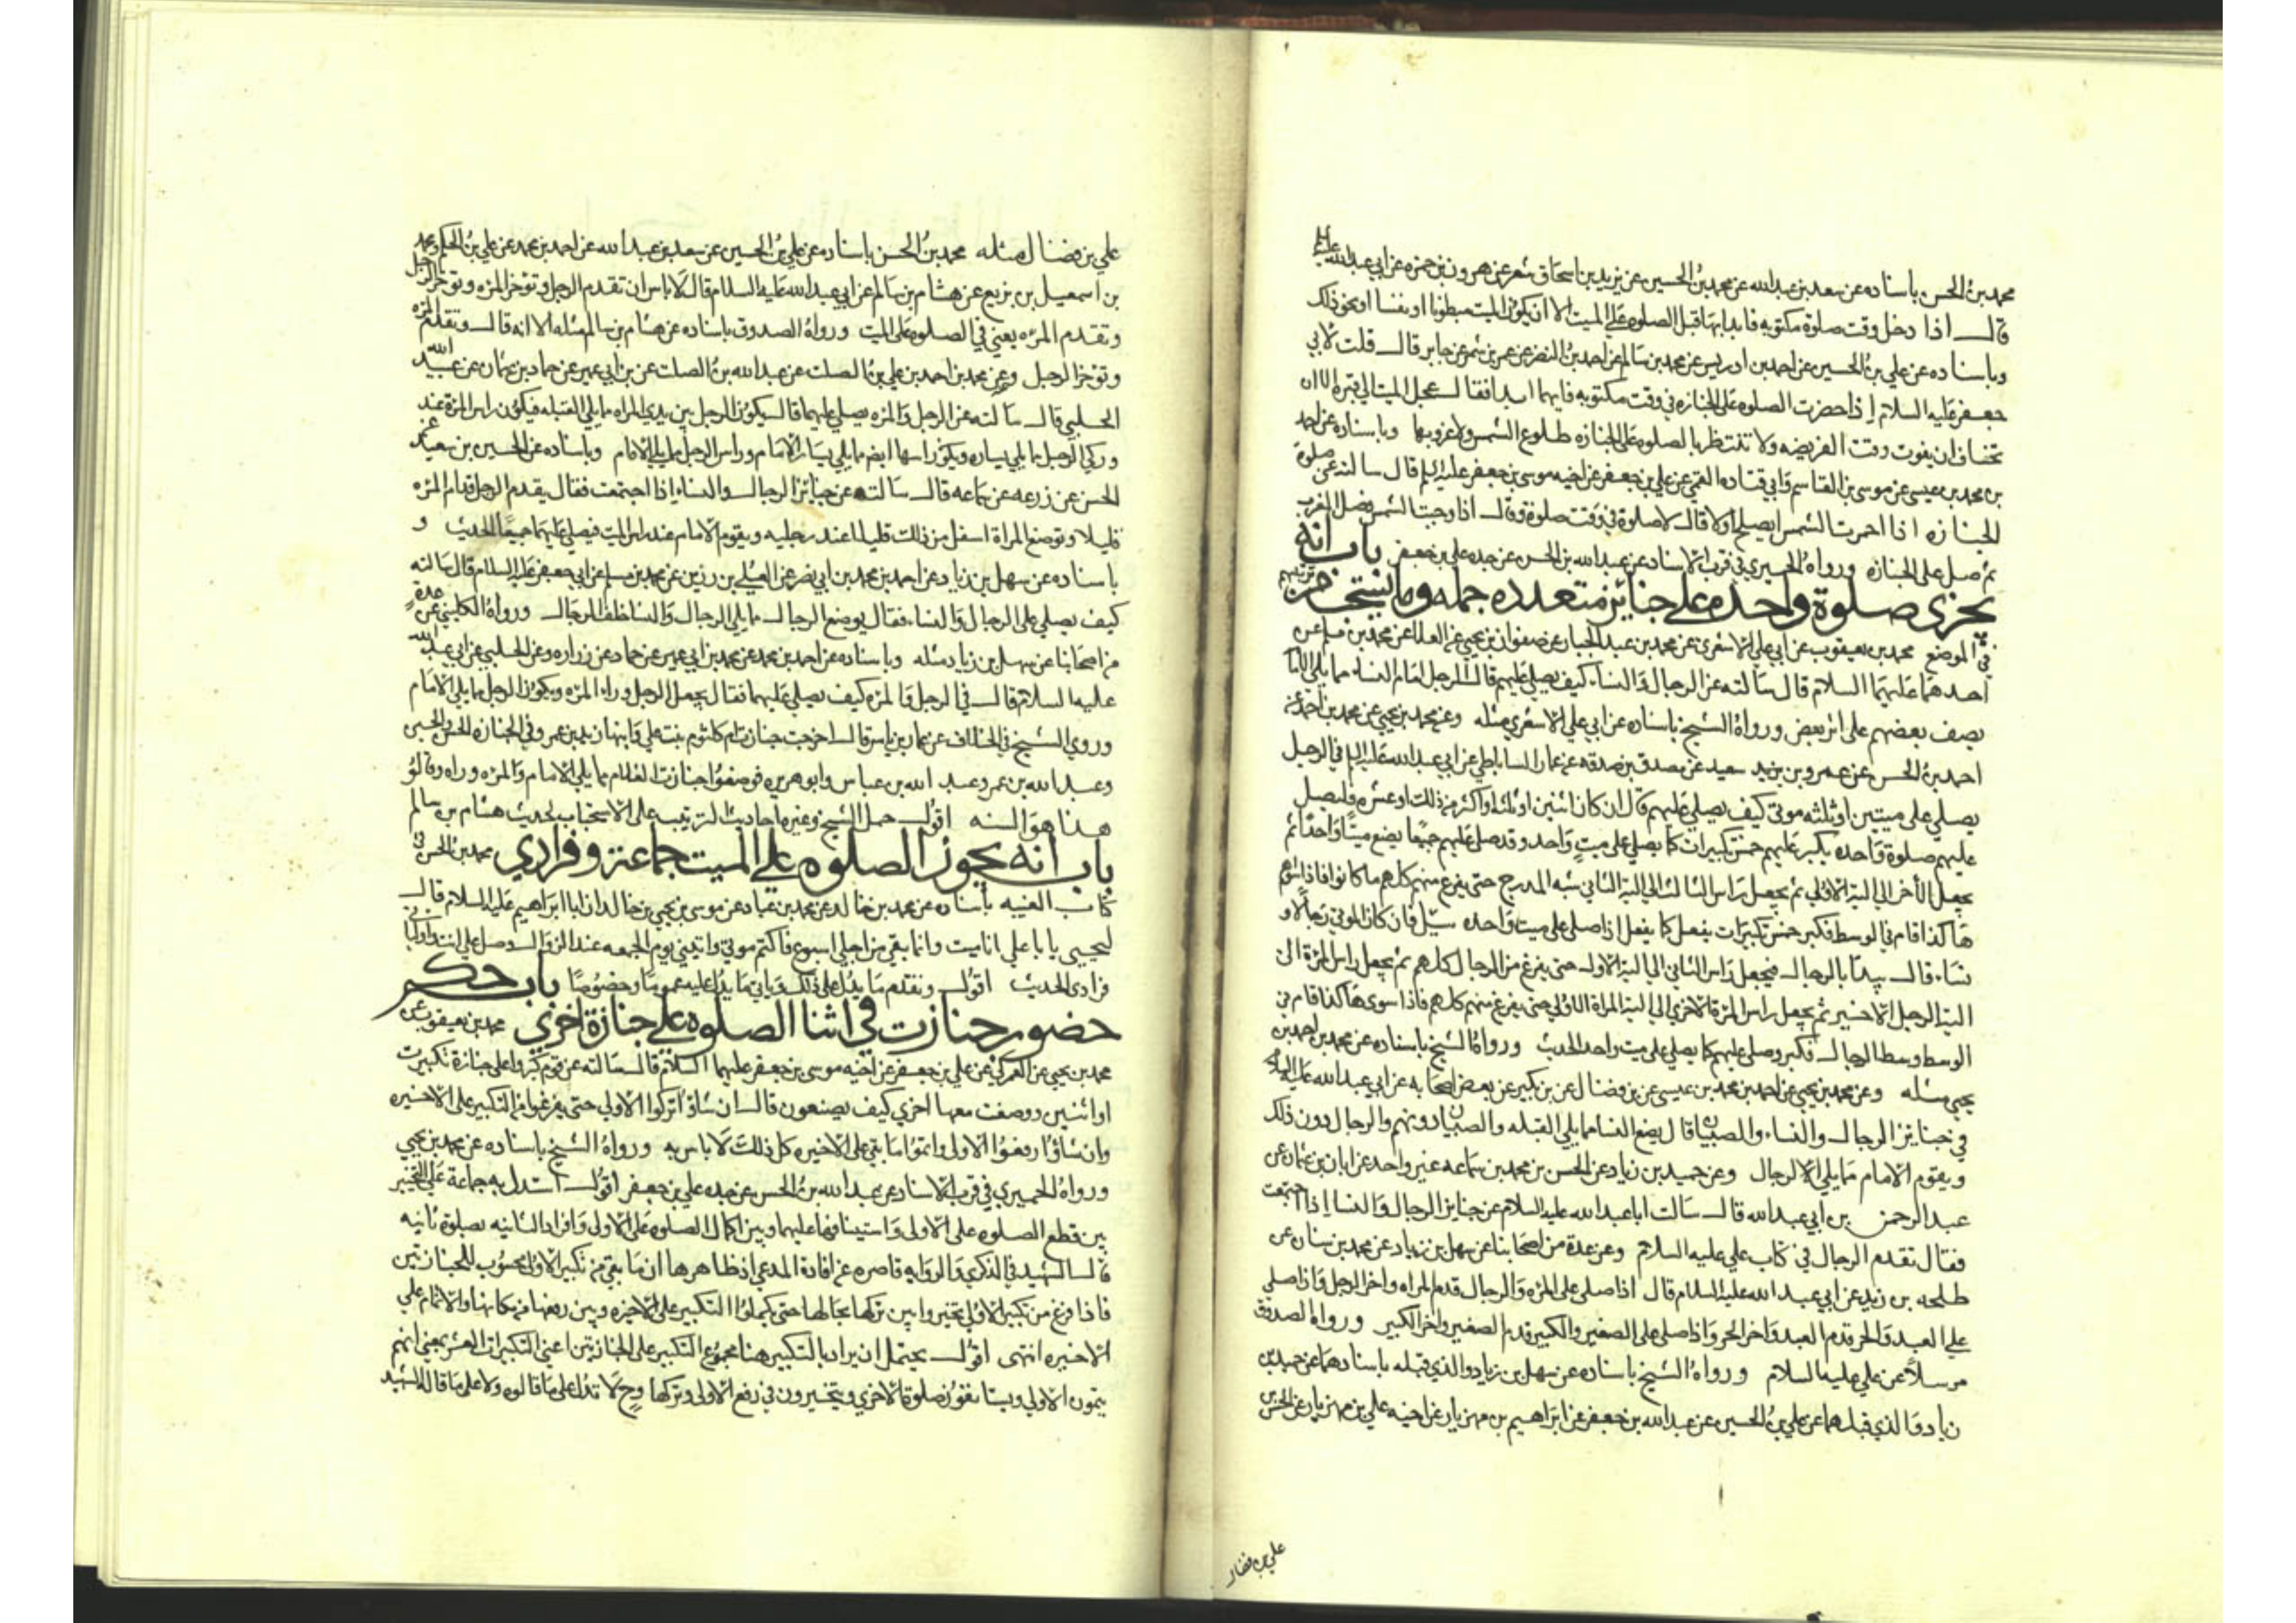 محمد بن الحسن باسناده عن سعد بن عبدالله عن محمد بن الحسين عن يزيد بن اسحاق شعر عن هرون بن حمزه عن ابي عبدالله عليه
قال اذا دخل وقت صلوة مكتوبه فابدابها قبل الصلوه على الميت الا ان يكون الميت مبطونا او نفسا او نحو ذلك
وباسناده عن علي بن الحسين عن احمد بن ادريس عن محمد بن سالم عن احمد بن النضر عن عمر بن شمر عن جابر قال قلت لابي
جعفر عليه السلام اذا حضرت الصلوه على الجنازه في وقت مكتوبه فايهما ابدا فقال عجل الميت الى قبره الا ان
تخاف ان يفوت وقت الفريضه ولا تنتظر بالصلوه على الجنازه طلوع الشمس ولا غروبها وباسناده عن احمد
بن محمد بن عيسى عن موسى بن القاسم وابي قتاده القمي عن علي بن جعفر عن اخيه موسى بن جعفر عليه السلام قال سالته عن صلوة
الجنازه اذا احمرت الشمس ايصلح اولا قال لا صلوة في وقت صلوة وقال اذا وجبت الشمس فصل المغرب
ثم صل على الجنازه ورواهُ الحميري في قرب الاسناد عن عبدالله بن الحسن عن جده علي بن جعفر باب انه
تجزي صلوة واحده على جنائز متعدده جمله وما يستحب من ترتيبهم
في الموضع محمد بن يعقوب عن ابي علي الاشعري عن محمد بن عبد الجبار عن صفوان بن يحيى عن العلا عن محمد بن مسلم عن
احدهما عليهما السلام قال سالته عن الرجال والنساء كيف يصلى عليهم قال الرجل امام النساء مما يلي الامام
يصف بعضهم على اثر بعض ورواهُ الشيخ باسناده عن ابي علي الاشعري مثله وعن محمد بن يحيى عن محمد بن احمد عن
احمد بن الحسن عن عمرو بن يزيد سعيد عن مصدق بن صدقه عن عمار الساباطي عن ابي عبدالله عليه السلام في الرجل
يصلي على ميتين او ثلثه موتى كيف يصلي عليهم قال ان كان اثنين او ثلثه او اكثر من ذلك او عشره فليصل
عليهم صلوة واحده يكبر عليهم خمس تكبيرات كما يصلي على ميت واحد وقد صلى عليهم جميعا يضع ميتا واحدا ثم
يجعل الأخر الى الية الاولى ثم يجعل راس الثالث الى الية الثاني شبه المدرج حتى يفرغ منهم كلهم ما كانوا فاذا سواهم
هاكذا قام في الوسط فكبر خمس تكبيرات يفعل كما يفعل اذا صلى على ميت واحده سئل فان كان الموتى رجالا و
نساء قال يبدا بالرجال فيجعل راس الثاني الى الية الاول حتى يفرغ من الرجال كلهم ثم يجعل راس المرة الى
الية الرجل الاخير ثم يجعل راس المرة الاخرى الى الية المراة الاولى حتى يفرغ منهم كلهم فاذا سوى هاكذا قام في
الوسط وسط الرجال فكبر وصلى عليهم كما يصلي على ميت واحد الحديث ورواهُ الشيخ باسناده عن محمد بن احمد بن
يحيى مثله وعن محمد بن يحيى عن احمد بن محمد بن عيسى عن بن فضال عن بن بكير عن بعض اصحابه عن ابي عبدالله عليه السلام
في جنايز الرجال والنساء والصبيان قال يضع النسا مما يلي القبله والصبيان دونهم والرجال دون ذلك
ويقوم الامام مما يلي الرجال وعن حميد بن زياد عن الحسن بن محمد بن سماعه عن غير واحد عن ابان بن عثمان عن
عبد الرحمن بن ابي عبدالله قال سالت ابا عبد الله عليه السلام عن جنايز الرجال والنسا اذا اجتمعت
فقال تقدم الرجال في كتاب علي عليه السلام وعن عدة من اصحابنا عن سهل بن زياد عن محمد بن سنان عن
طلحه بن زيد عن ابي عبد الله عليه السلام قال اذا صلى على المرة والرجال قدم المراه واخر الرجل واذا صلى
على العبد والحر قدم العبد واخر الحر واذا صلى على الصغير والكبير قدم الصغير واخر الكبير ورواه الصدوق
مرسلاً عن علي عليه السلام ورواهُ الشيخ باسناده عن سهل بن زياد والذي قبله باسنادهما عن حميد بن
زياد والذي قبلهما عن علي بن الحسين عن عبدالله بن جعفر عن ابراهيم بن مهزيار عن اخيه علي بن مهزيار عن الحسن
علي بن فضال
علي بن فضال مثله محمد بن الحسن باسناده عن علي بن الحسين عن سعد بن عبدالله عن احمد بن محمد عن علي بن الحكم ومحمد
بن اسمعيل بن بزيع عن هشام بن سالم عن ابي عبدالله عليه السلام قال لا باس ان تقدم الرجل وتؤخر المره وتوخر الرجل
وتقدم المره يعني في الصلوه على الميت ورواهُ الصدوق باسناده عن هشام بن سالم مثله الا انه قال وتقدم المره
وتوخر الرجل وعن محمد بن احمد بن علي بن الصلت عن عبدالله بن الصلت عن بن ابي عمير عن حماد بن عثمان عن عبيد الله
الحلبي قال سالته عن الرجل والمره يصلي عليهما قال يكون الرجل بين يدي المراه مما يلي القبله فيكون راس المرة عند
وركي الرجل مما يلي يساره ويكون راسها ايضا مما يلي يسار الامام وراس الرجل مما يلي الامام وباسناده عن الحسين بن سعيد عن
الحسن عن زرعه عن سماعه قال سالته عن جنائز الرجال والنساء اذا اجتمعت فقال يقدم الرجل قدام المره
قليلا وتوضع المراة اسفل من ذلك قليلا عند رجليه ويقوم الامام عند راس الميت فيصلي عليهما جميعا الحديث و
باسناده عن سهل بن زياد عن احمد بن محمد بن ابي نصر عن العلى بن رزين عن محمد بن مسلم عن ابي جعفر عليه السلام قال سالته
كيف يصلى على الرجال والنساء فقال يوضع الرجال مما يلي الرجال والنسا خلف الرجال ورواهُ الكليني عن عدة
من اصحابنا عن سهل بن زياد مثله وباسناده عن احمد بن محمد عن محمد بن ابي عمير عن حماد عن زراره وعن الحلبي عن ابي عبدالله
عليه السلام قال في الرجل والمره كيف يصلى عليهما فقال يجعل الرجل وراء المره ويكون الرجل مما يلي الامام
وروي الشيخ في الخلاف عن عمار بن ياسر قال اخرجت جنازة ام كلثوم بنت علي وابنها زيد بن عمر وفي الجنازه الحسن والحسين
وعبد الله بن عمر وعبد الله بن عباس وابو هريره فوضعوا جنازت الغلام مما يلي الامام والمره وراه وقالوا
هذا هو السنه اقول حمل الشيخ وغيره احاديث الترتيب على الاستحباب لحديث هشام بن سالم
باب انه يجوز الصلوه على الميت جماعة وفرادي محمد بن الحسن في
كتاب الغيبه باسناده عن محمد بن خالد عن محمد بن عباد عن موسى بن يحيى بن خالد ان ابا ابراهيم عليه السلام قال
ليحيى يا ابا علي انا ميت وانما بقي من اجلي اسبوع فاكتم موتي واتيني يوم الجمعه عند الزوال وصل علي انت واوليائي
فرادى الحديث اقول وتقدم ما يدل على ذلك وياتي ما يدل عليه عموما وخصوصا باب حكم
حضور جنازت في اثنا الصلوه على جنازة اخري محمد بن يعقوب عن
محمد بن يحيى عن العمركي عن علي بن جعفر عن اخيه موسى بن جعفر عليهما السلام قال سالته عن قوم كبروا على جنازة تكبيرت
او اثنين ووضعت معها اخري كيف يصنعون قال ان شاؤا تركوا الاولى حتى يفرغوا من التكبير على الاخيره
وان شاؤا رفعوا الاولى واتموا ما بقي على الاخيره كل ذلك لا باس به ورواهُ الشيخ باسناده عن محمد بن يحيى
ورواهُ الحميري في قرب الاسناد عن عبدالله بن الحسن عن جده علي بن جعفر اقول استدل به جماعة على التخيير
بين قطع الصلوه على الاولى واستينافها عليهما وبين اكمال الصلوه على الاولى وافراد الثانيه بصلوة ثانيه
قال الشهيد في الذكري والروايه قاصره عن افادة المدعي اذ ظاهرها ان ما بقي من تكبير الاولى محسوب للجنازتين
فاذا فرغ من تكبير الاولى تخيروا بين تركها بحالها حتى يكملوا التكبير على الاخيره وبين رفعها من مكانها والاتمام على
الاخيره انتهى اقول يحتمل ان يراد بالتكبير هنا مجموع التكبير على الجنازتين اعني التكبيرات العشر بمعنى انهم
يتمون الاولى ويستانفون صلوة الاخري ويتخيرون في رفع الاولى وتركها وح لا تدل على ما قالوه ولا على ما قاله الشهيد